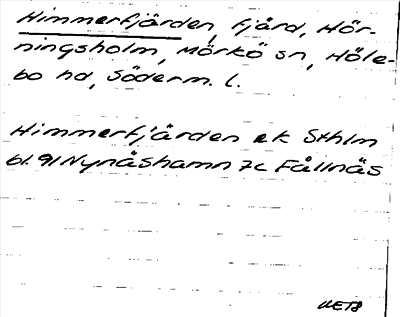 Himmerfjärden, fjärd, Hör-
ningsholm, Mörkö sn, Höle-
bo hd, Söderm. l.
Himmerfjärden ek Sthlm
bl. 91 Nynäshamn 7c Fållnäs